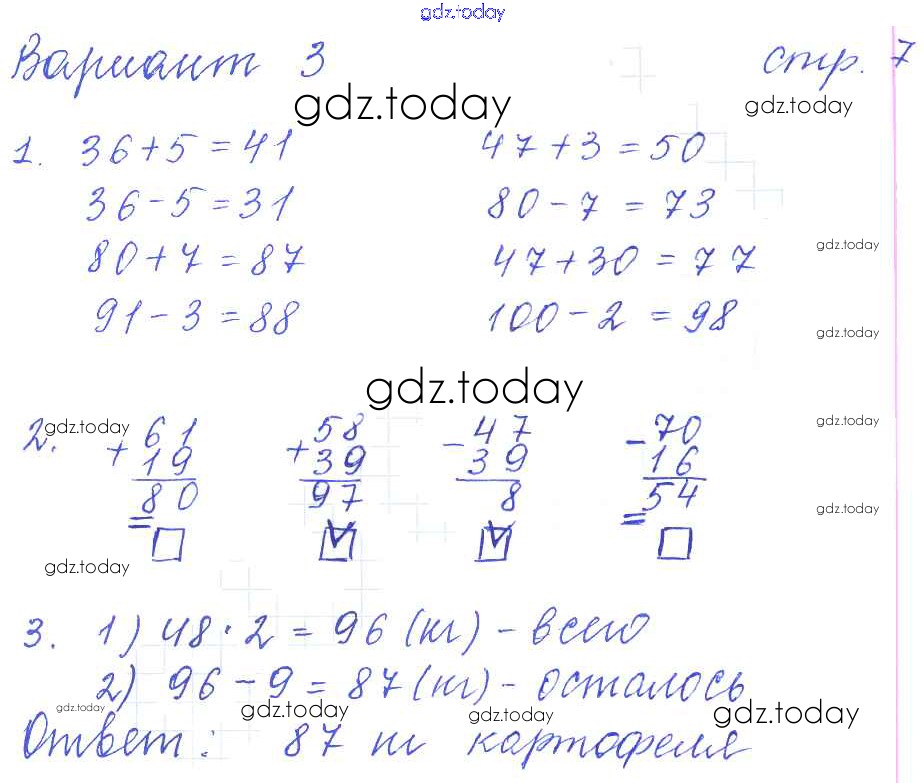 gdz.today
Вариант 3 стр. 7
gdz.today gdz.today
1. 36+5=41 47+3=50
36-5=31 80-7=73
gdz.today
80+7=87 47+30=77
91-3=88 100-2=98
gdz.today
gdz.today
2. gdz.today + 61 + 58 - 47 - 70 gdz.today
19 39 39 16
80 97 8 54
gdz.today
= ☐ ☑ ☑ = ☐
gdz.today
3. 1) 48·2=96 (кг) - всего
2) 96-9=87 (кг) - осталось
gdz.today gdz.today gdz.today gdz.today
Ответ: 87 кг картофеля